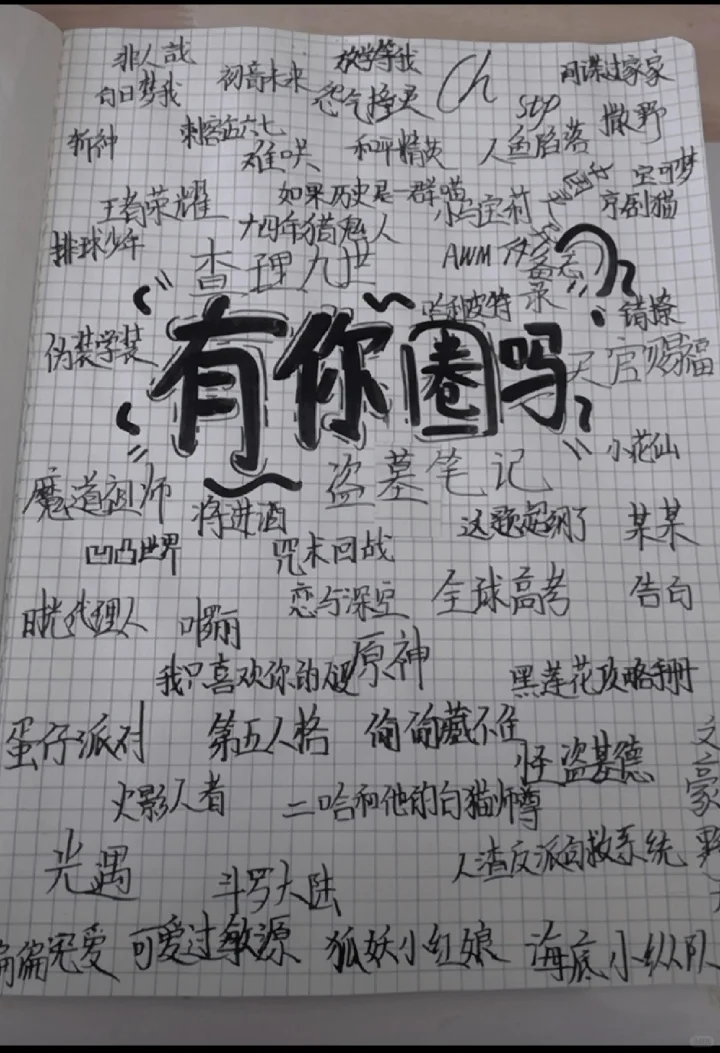 非人哉
放学等我
白日梦我
初音未来
怨气撞灵
Ch
阿谍过家家
stp
撒野
斩神
刺客伍六七
难哄
和平精英
人鱼陷落
宝可梦
王者荣耀
如果历史是一群喵
小马宝莉
京剧猫
排球少年
十四年猎鬼人
查理九世
AWM
备忘录
哈利波特
错撩
伪装学装
有你圈吗?
天官赐福
小花仙
魔道祖师
将进酒
盗墓笔记
这题超纲了
某某
凹凸世界
咒术回战
恋与深空
全球高考
告白
时光代理人
啰丽
原神
我只喜欢你的
黑莲花攻略手册
蛋仔派对
第五人格
偷偷藏不住
怪盗基德
火影人者
二哈和他的白猫师尊
文豪野
光遇
斗罗大陆
人渣反派自救系统
偏偏宠爱
可爱过敏源
狐妖小红娘
海底小纵队